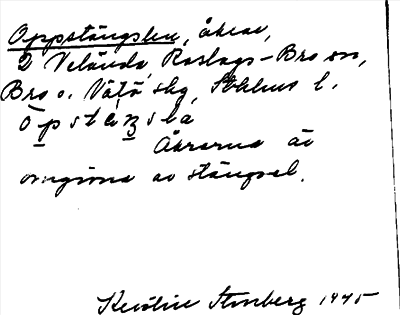 Oppstängslen, åkrar,
2 Velända, Roslags-Bro sn,
Bro o. Vätö skg, Sthlms l.
Åkrarna är
omgivna av stängsel.
Kerstin Stenberg 1945